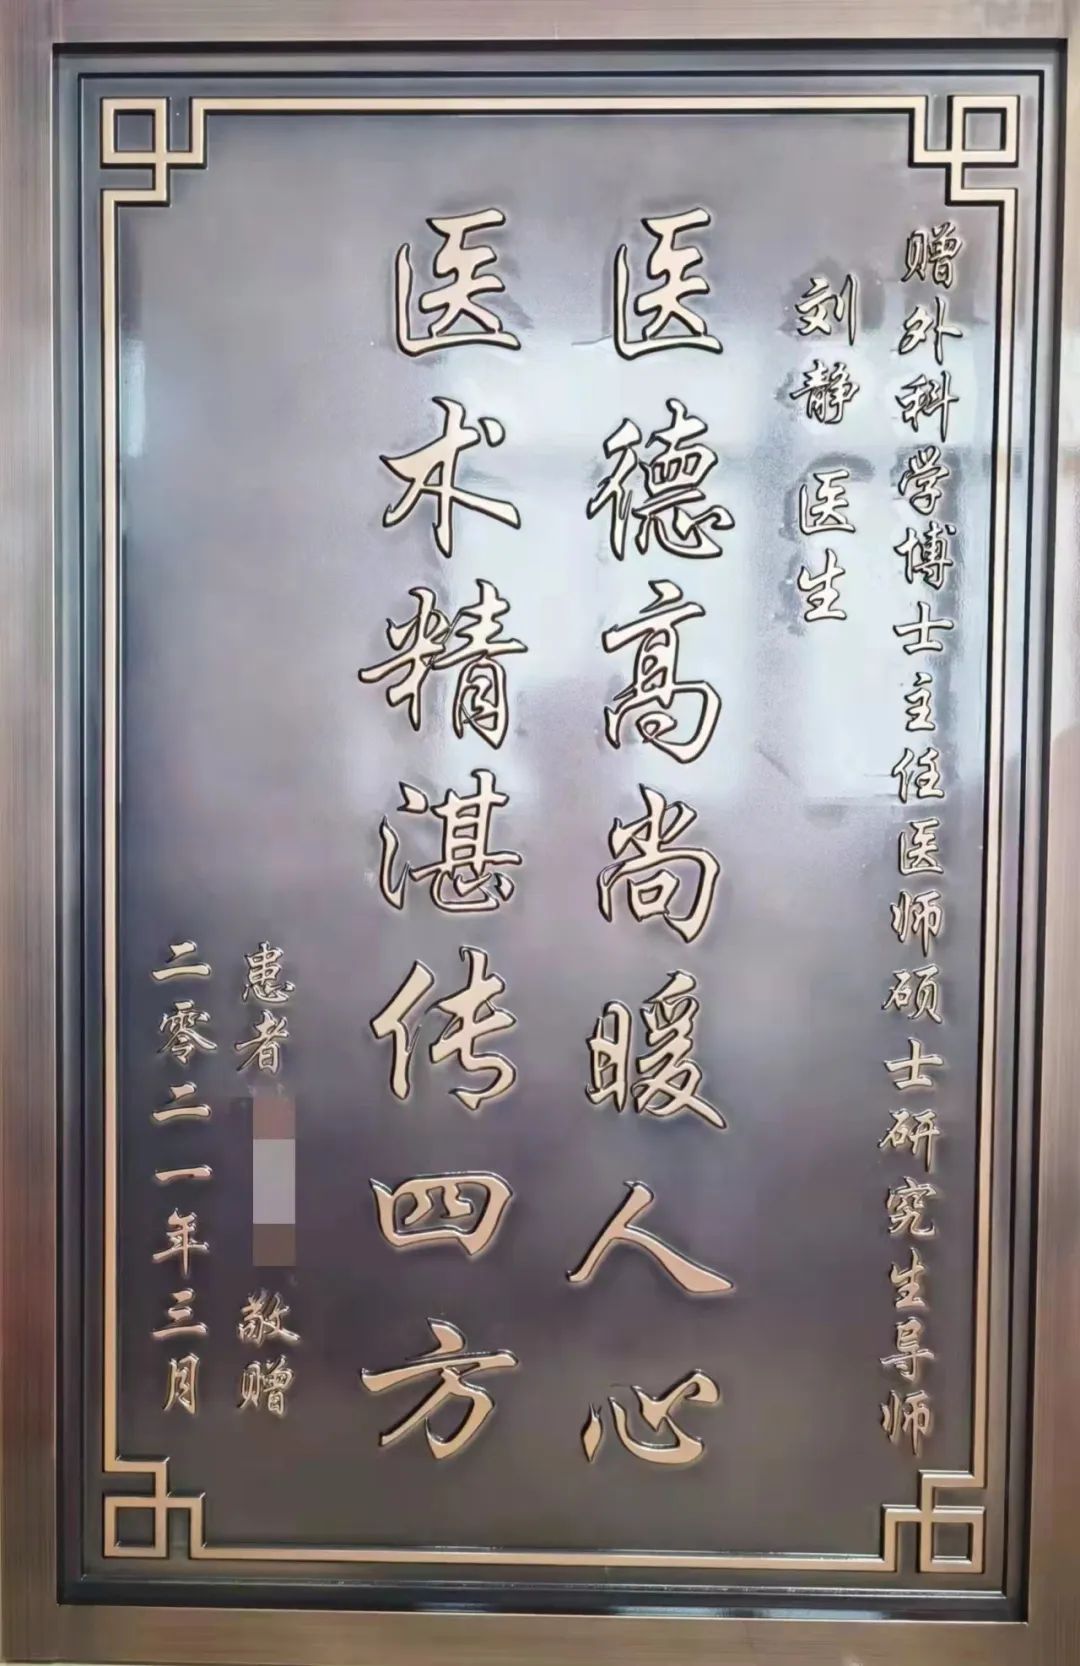 赠外科学博士主任医师硕士研究生导师
刘静 医生
医德高尚暖人心
医术精湛传四方
患者 敬赠
二零二一年三月